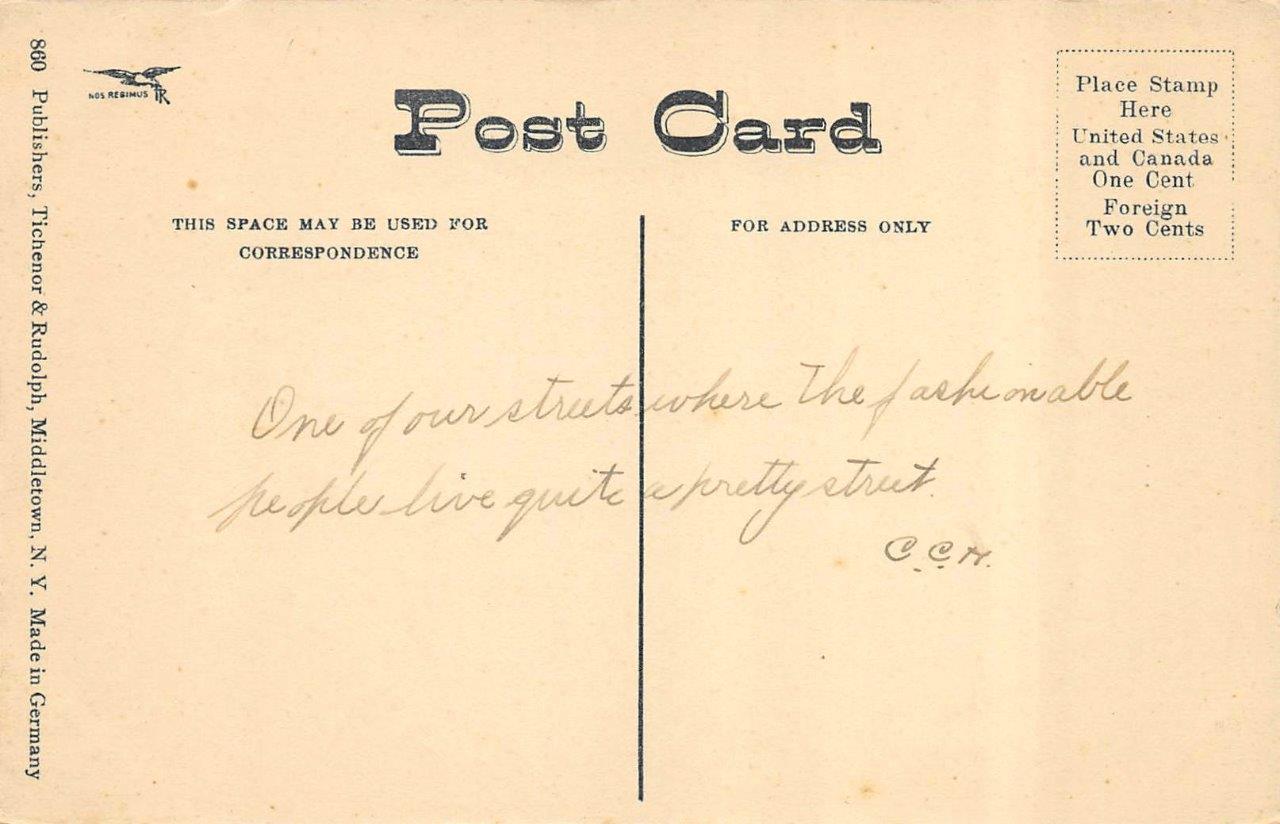 860 Publishers, Tichenor & Rudolph, Middletown, N. Y. Made in Germany
NOS REGIMUS TR
Post Card
Place Stamp
Here
United States
and Canada
One Cent
Foreign
Two Cents
THIS SPACE MAY BE USED FOR
CORRESPONDENCE
FOR ADDRESS ONLY
One of our streets where the fashionable
people live quite a pretty street.
C. C. H.